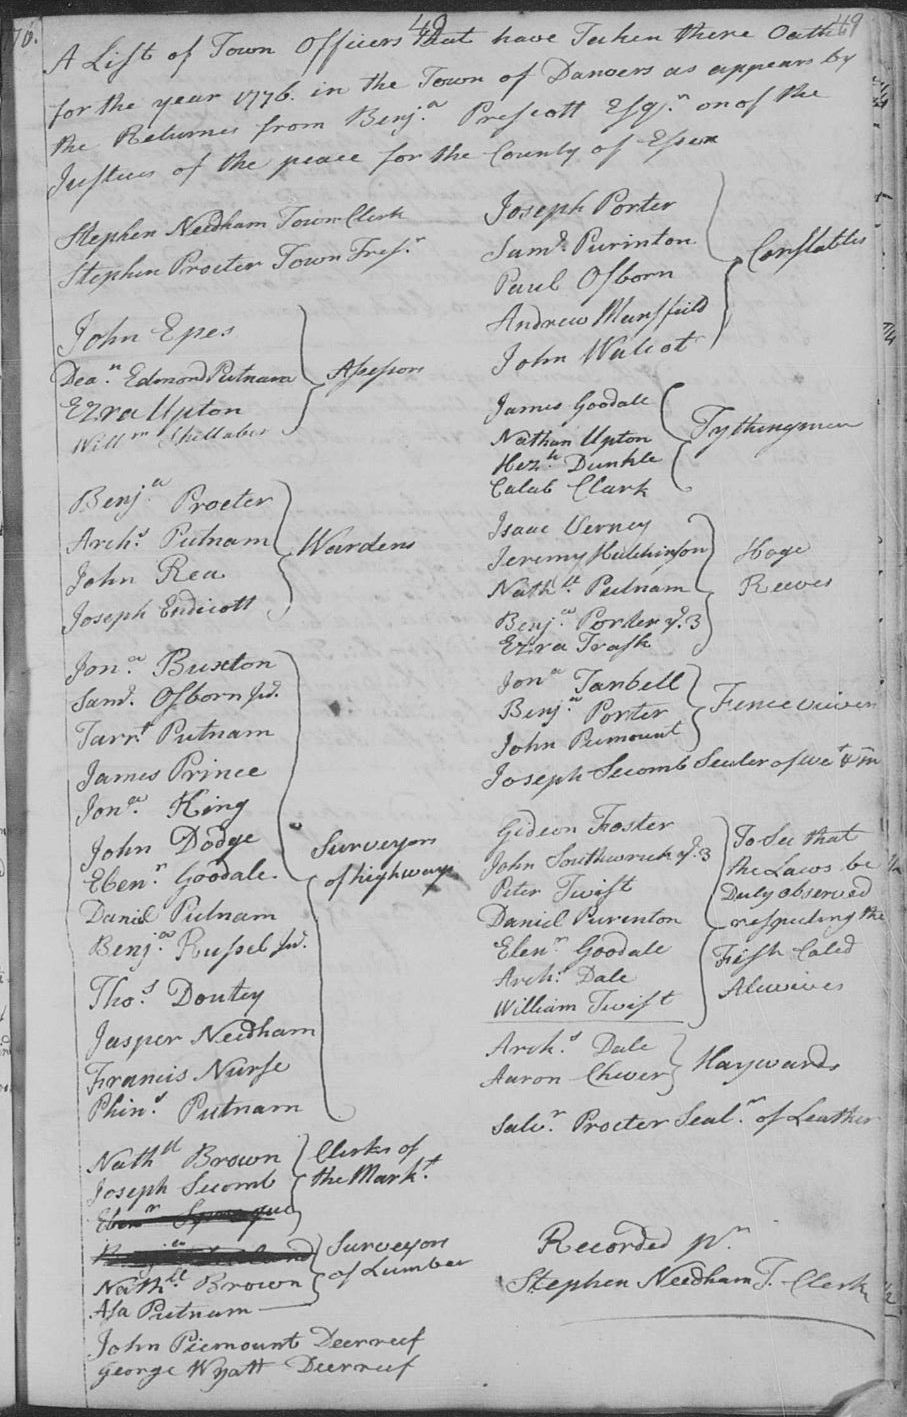 76.
49
49
A List of Town Officers that have Taken there Oaths
for the year 1776. in the Town of Danvers as appears by
the Returnes from Benj.a Prescott Esq.r on of the
Justices of the peace for the County of Essex
Stephen Needham Town Clerk
Stephen Procter Town Tresr
John Epes
Dea.n Edmond Putnam
Ezra Upton
Will.m Shillaber
Assessors
Benj.a Procter
Arch.s Putnam
John Rea
Joseph Endicott
Wardens
Jon.a Buxton
Saml. Osborn Jr.
Tarrt Putnam
James Prince
Jon.a King
John Dodge
Eben.r Goodale.
Daniel Putnam
Benj.a Russel Jr.
Tho.s Doutey
Jasper Needham
Francis Nurse
Phin.s Putnam
Surveyors
of highways
Nathll Brown
Joseph Secomb
Ebenr Sprague
Clerks of
the Markt.
Nath.ll Brown
Asa Putnam
Surveyors
of Lumber
John Piemount Deerreef
George Wyatt Deerreef
Joseph Porter
Saml. Purinton
Paul Osborn
Andrew Mansfield
John Walcot
Constables
James Goodale
Nathan Upton
Hez.h Dunkle
Caleb Clark
Tythingmen
Isaac Verney
Jeremy Hutchinson
Nathll Putnam
Benj.a Porter ye. 3
Ezra Trask
Hoge
Reeves
Jon.a Tarbell
Benj.a Porter
John Pemount
Fence viewers
Joseph Secomb Sealer of wt & m
Gideon Foster
John Southwick ye. 3
Peter Twist
Daniel Purinton
Eben.r Goodale
Arch.s Dale
William Twist
To See that
the Laws be
Duly observed
respecting the
Fish Caled
Alewives
Arch.s Dale
Aaron Chever
Haywards
Salvr. Procter Seal.r of Leather
Recorded pr.
Stephen Needham T. Clerk